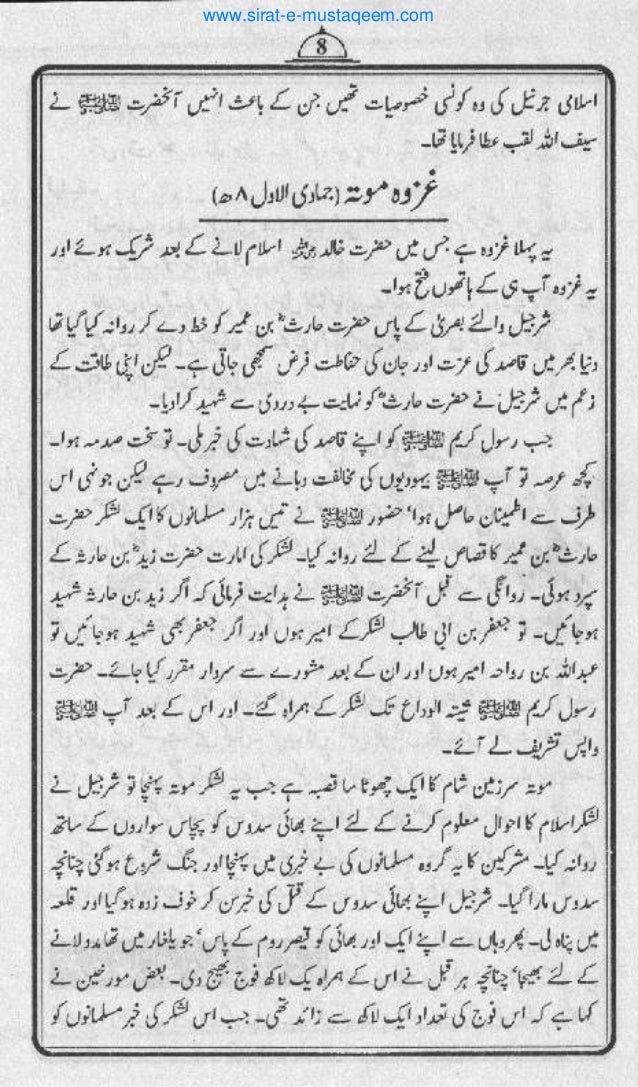 www.sirat-e-mustaqeem.com
8
اسلامی جرنیل کی وہ کونسی خصوصیات تھیں جن کے باعث انہیں آنحضرت ﷺ نے
سیف اللہ لقب عطا فرمایا تھا۔
غزوہ موتہ (جمادی الاول ۸ ھ)
یہ پہلا غزوہ ہے جس میں حضرت خالد اسلام لانے کے بعد شریک ہوئے اور
یہ غزوہ آپ ہی کے ہاتھوں فتح ہوا۔
شرجیل والئے بصریٰ کے پاس حضرت حارثؓ بن عمیر کو خط دے کر روانہ کیا گیا تھا
دنیا بھر میں قاصد کی عزت اور جان کی حفاظت فرض سمجھی جاتی ہے۔ لیکن اپنی طاقت کے
زعم میں شرجیل نے حضرت حارثؓ کو نہایت بے دردی سے شہید کرا دیا۔
جب رسول کریم ﷺ کو اپنے قاصد کی شہادت کی خبر ملی۔ تو سخت صدمہ ہوا۔
کچھ عرصہ تو آپ ﷺ یہودیوں کی مخالفت دبانے میں مصروف رہے لیکن جونہی اس
طرف سے اطمینان حاصل ہوا' حضور ﷺ نے تیس ہزار مسلمانوں کا ایک لشکر حضرت
حارثؓ بن عمیر کا قصاص لینے کے لئے روانہ کیا۔ لشکر کی امارت حضرت زیدؓ بن حارثہ کے
سپرد ہوئی۔ روانگی سے قبل آنحضرت ﷺ نے ہدایت فرمائی کہ اگر زید بن حارثہ شہید
ہو جائیں۔ تو جعفر بن ابی طالب لشکر کے امیر ہوں اور اگر جعفر بھی شہید ہو جائیں تو
عبداللہ بن رواحہ امیر ہوں اور ان کے بعد مشورے سے سردار مقرر کیا جائے۔ حضرت
رسول کریم ﷺ شیتہ الوداع تک لشکر کے ہمراہ گئے۔ اور اس کے بعد آپ ﷺ
واپس تشریف لے آئے۔
موتہ سرزمین شام کا ایک چھوٹا سا قصبہ ہے جب یہ لشکر موتہ پہنچا تو شرجیل نے
لشکر اسلام کا احوال معلوم کرنے کے لئے اپنے بھائی سدوس کو پچاس سواروں کے ساتھ
روانہ کیا۔ مشرکین کا یہ گروہ مسلمانوں کی بے خبری میں پہنچا اور جنگ شروع ہو گئی چنانچہ
سدوس مارا گیا۔ شرجیل اپنے بھائی سدوس کے قتل کی خبر سن کر خوف زدہ ہو گیا اور قلعہ
میں پناہ لی۔ پھر وہاں سے اپنے ایک اور بھائی کو قیصر روم کے پاس' جو میں تھا مدد لانے
کے لئے بھیجا' چنانچہ ہر قبل نے اس کے ہمراہ یک لاکھ فوج بھیج دی۔ بعض مورخین نے
کہا ہے کہ اس فوج کی تعداد ایک لاکھ سے زائد تھی۔ جب اس لشکر کی خبر مسلمانوں کو